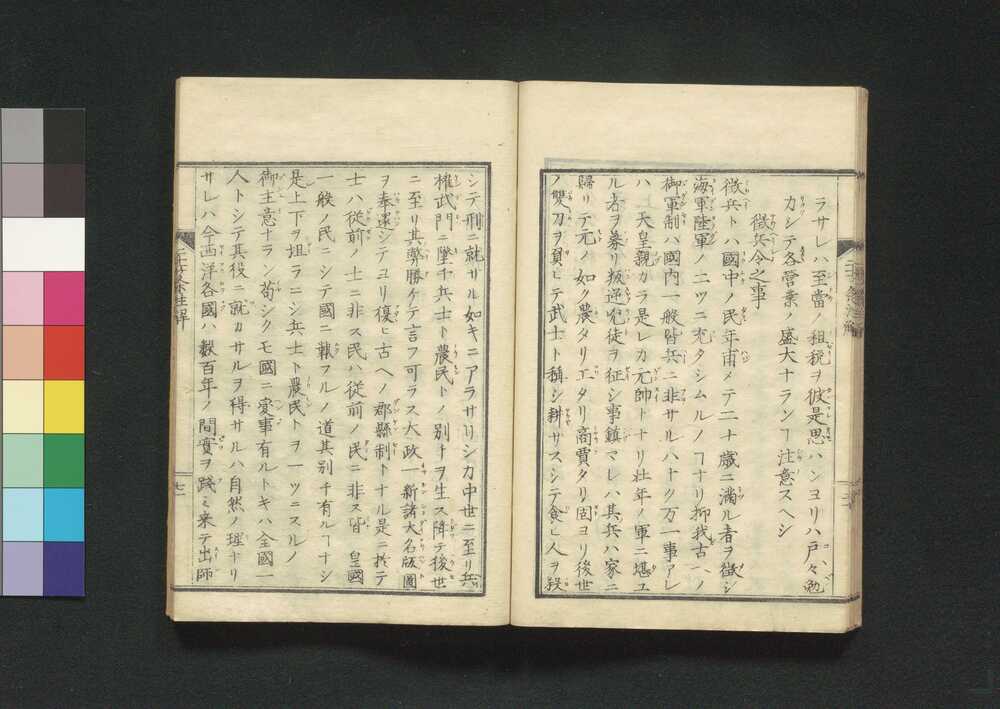 ラサレハ至當ノ租税ヲ彼是思ハンヨリハ戸々勉
カシテ各営業ノ盛大ナランヿ注意スヘシ
徴兵令之事
徴兵トハ國中ノ民年甫メテ二十歳ニ満ル者ヲ徴シ
海軍陸軍ノ二ツニ充タシムルノヿナリ抑我古ヘノ
御軍制ハ國内一般皆兵ニ非サルハナク万一事アレ
ハ 天皇親カラ是レカ元帥トナリ壮年ノ軍ニ堪ユ
ル者ヲ募リ叛逆犯徒ヲ征シ事鎮マレハ其兵ハ家ニ
歸リテ元ノ如ク農タリ工タリ商賈タリ固ヨリ後世
ノ雙刀ヲ負ヒテ武士ト稱シ耕サスシテ食ヒ人ヲ殺
シテ刑ニ就サル如キニアラサリシカ中世ニ至リ兵
權武門ニ墜チ兵士ト農民トノ別チヲ生ス降テ後世
ニ至リ其弊勝ケテ言フ可ラス大政一新諸大名版圖
ヲ奉還シテヨリ復ヒ古ヘノ郡縣制トナル是ニ於テ
士ハ従前ノ士ニ非ス民ハ従前ノ民ニ非ス皆 皇國
一般ノ民ニシテ國ニ報フルノ道其別チ有ルヿナシ
是上下ヲ坦ラニシ兵士ト農民トヲ一ツニスルノ
御主意ナラン苟シクモ國ニ変事有ルトキハ全國一
人トシテ其役ニ就カサルヲ得サルハ自然ノ理ナリ
サレハ今西洋各國ハ數百年ノ間實ヲ踐ミ来テ出師
七一